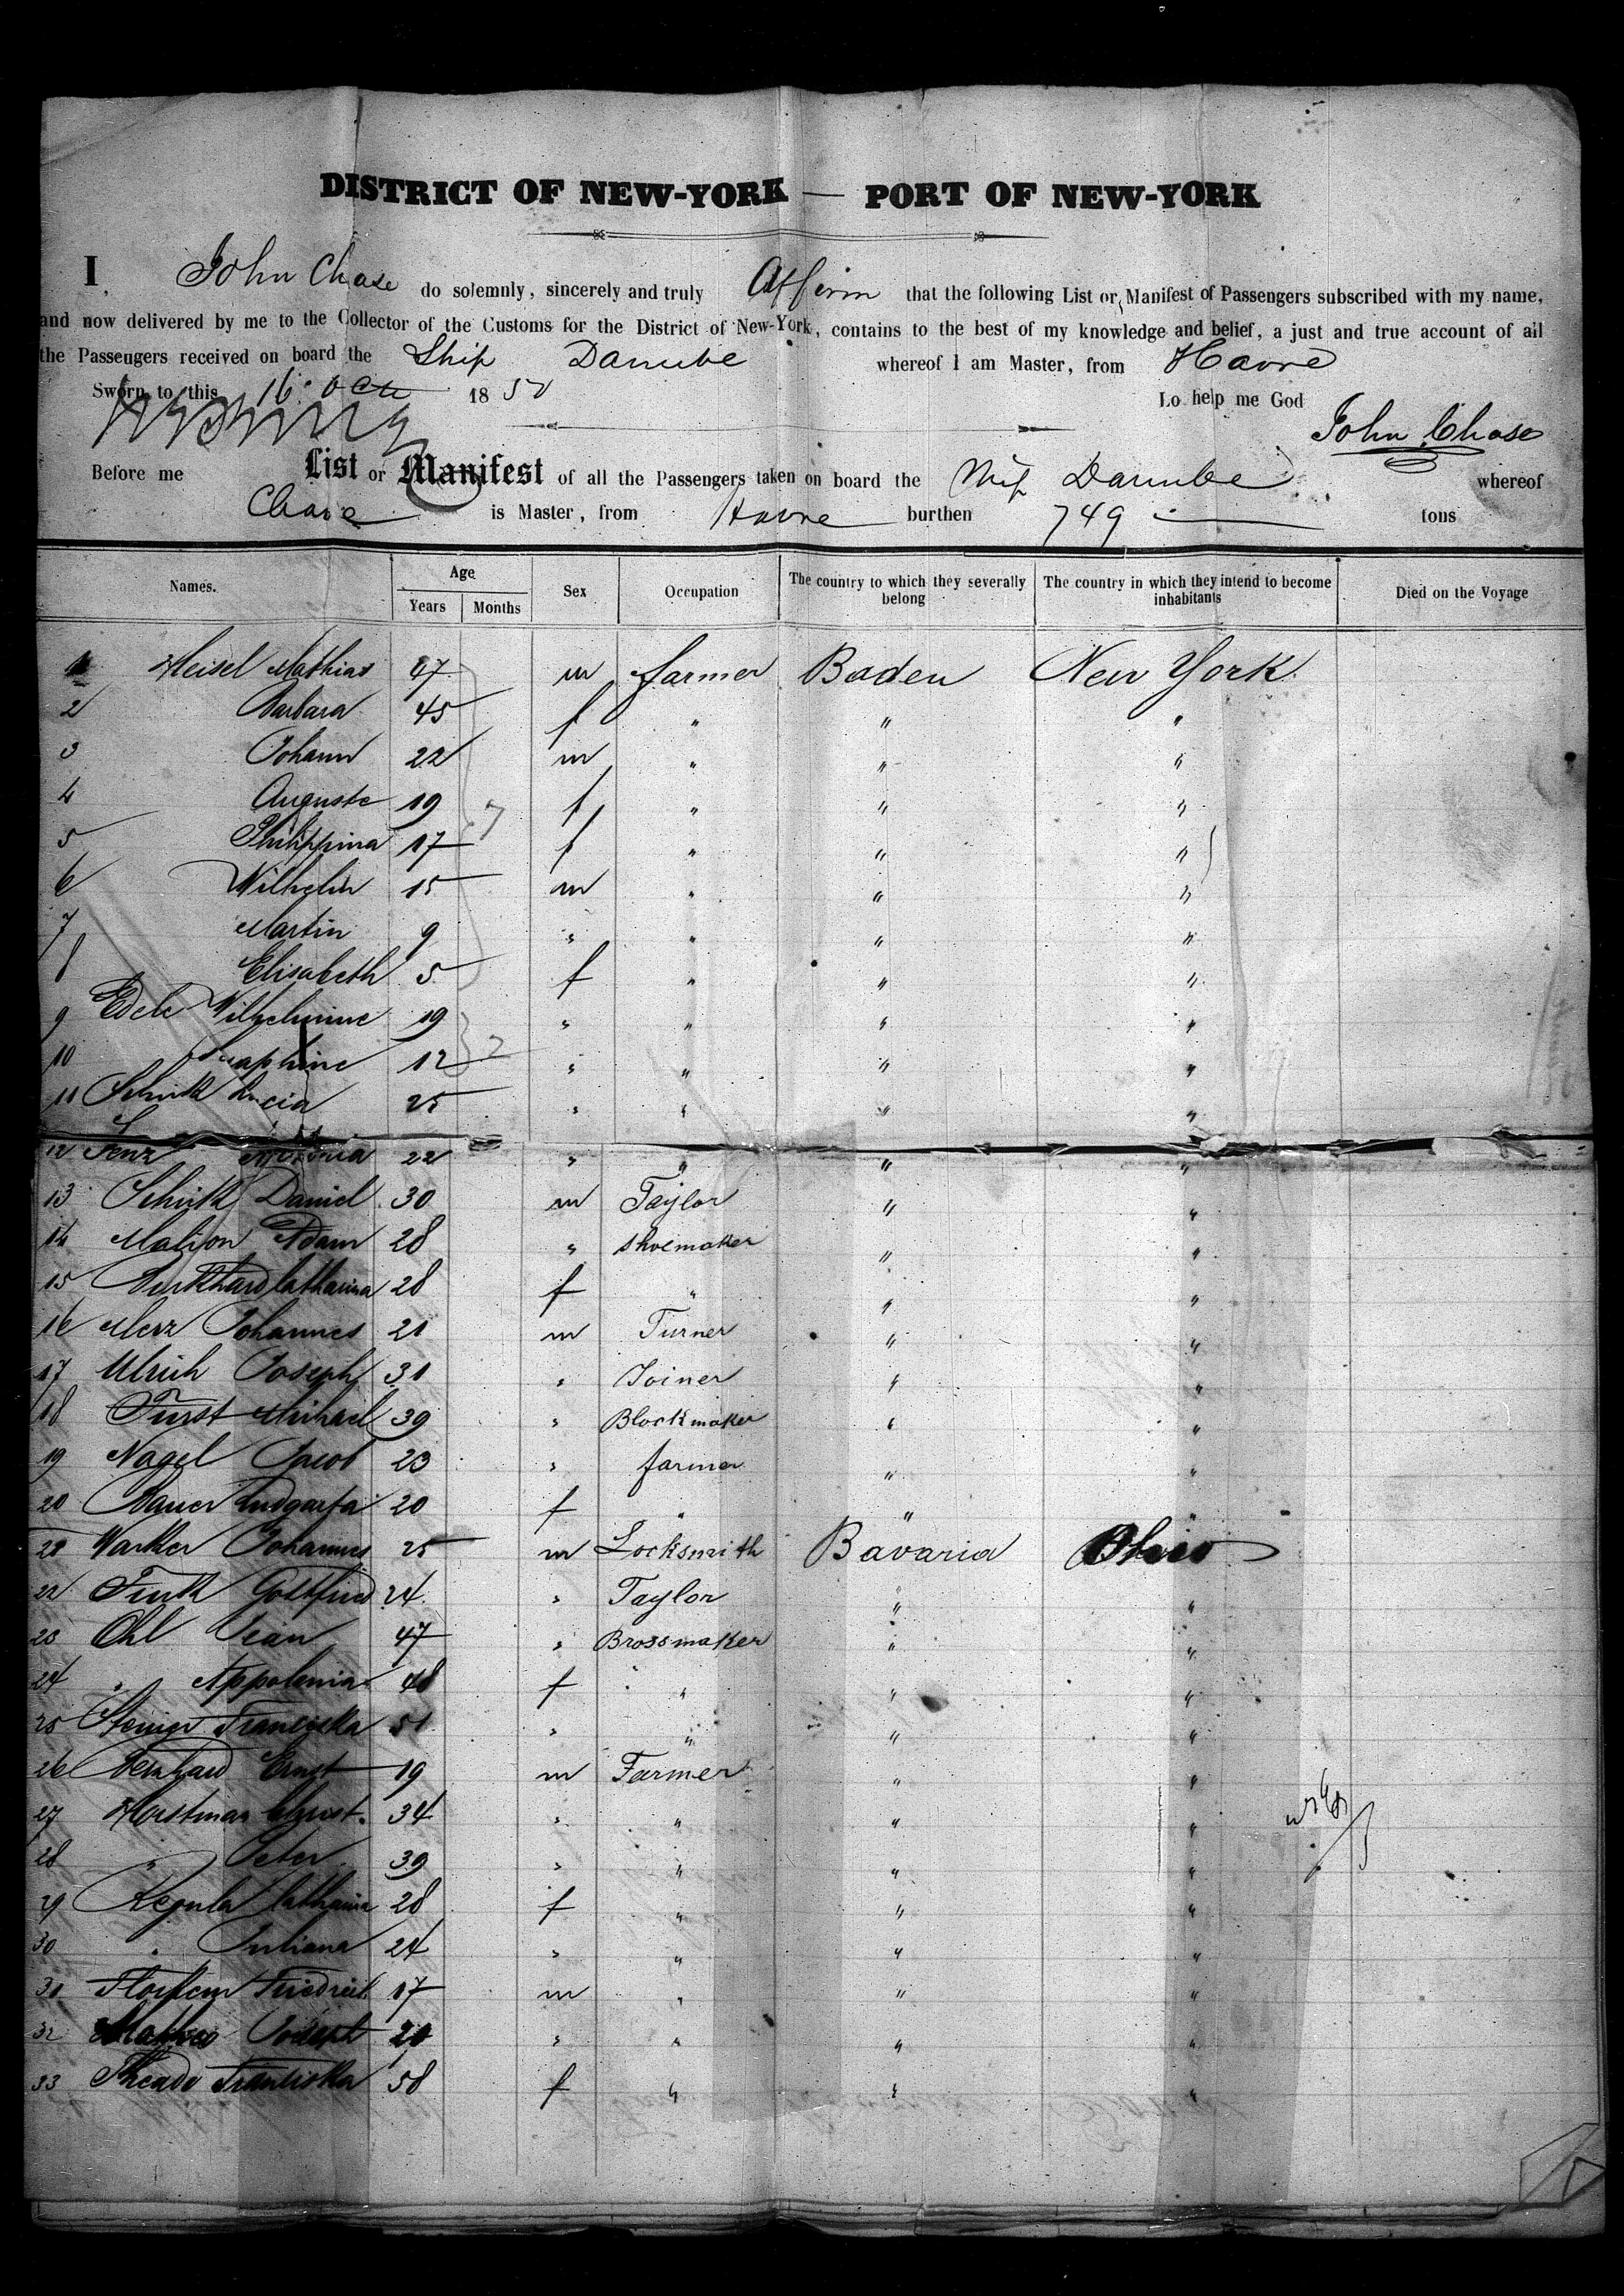 DISTRICT OF NEW-YORK — PORT OF NEW-YORK
I, John Chase do solemnly, sincerely and truly Affirm that the following List or Manifest of Passengers subscribed with my name,
and now delivered by me to the Collector of the Customs for the District of New-York, contains to the best of my knowledge and belief, a just and true account of all
the Passengers received on board the Ship Danube whereof I am Master, from Havre
Sworn to this 16 Oct 1850 Lo help me God
John Chase
Before me List or Manifest of all the Passengers taken on board the Ship Danube whereof
Chase is Master, from Havre burthen 749 tons
Names. Age Years Months Sex Occupation The country to which they severally belong The country in which they intend to become inhabitants Died on the Voyage
1 Heisel Mathias 47 m farmer Baden New York
2 Barbara 45 f " " "
3 Johann 22 m " " "
4 Auguste 19 f " " "
5 Philippina 17 f " " "
6 Wilhelm 15 m " " "
7 Martin 9 " " " "
8 Elisabeth 5 f " " "
9 Edele Wilhelmine 19 " " " "
10 Seraphine 12 " " " "
11 Schirk Lucia 25 " " " "
12 22 " " " "
13 Schirk Daniel 30 m Taylor " "
14 Malison Adam 28 " shoemaker " "
15 Burkhard Catharina 28 f " " "
16 Merz Johannes 21 m Turner " "
17 Ulrich Joseph 31 " Joiner " "
18 Furst Michael 39 " Blockmaker " "
19 Nagel Jacob 23 " farmer " "
20 Bauer 20 f " " "
21 Warker Johannes 25 m Locksmith Bavaria Ohio
22 Funk Gottfried 24 " Taylor " "
23 Ohl Jean 47 " Brossmaker " "
24 " Appolonia 48 f " " "
25 Franciska 51 " " " "
26 Ernst 19 m Farmer " "
27 Horstman Christ. 34 " " " "
28 " Peter 39 " " " "
29 Regula Catharina 28 f " " "
30 " Juliana 24 " " " "
31 Friedrich 17 m " " "
32 Joseph 20 " " " "
33 Franciska 58 f " " "